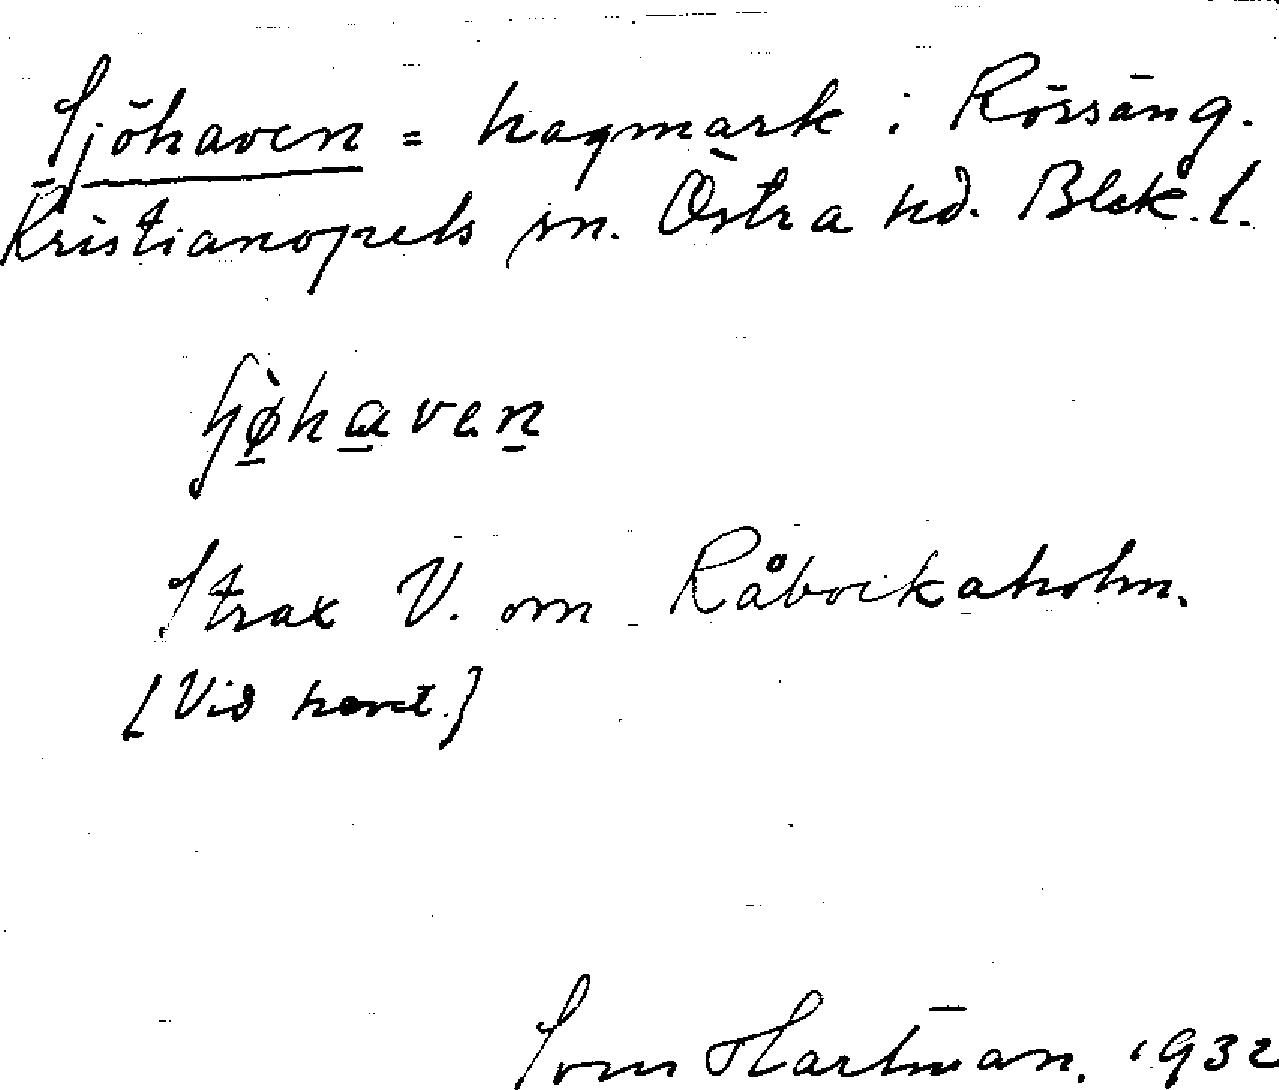 Sjöhaven = hagmark i Rössäng.
Kristianopels sn. Östra hd. Blek. l.
Strax V. om Råbockaholm.
[Vid havet.]
Sven Hartman. 1932